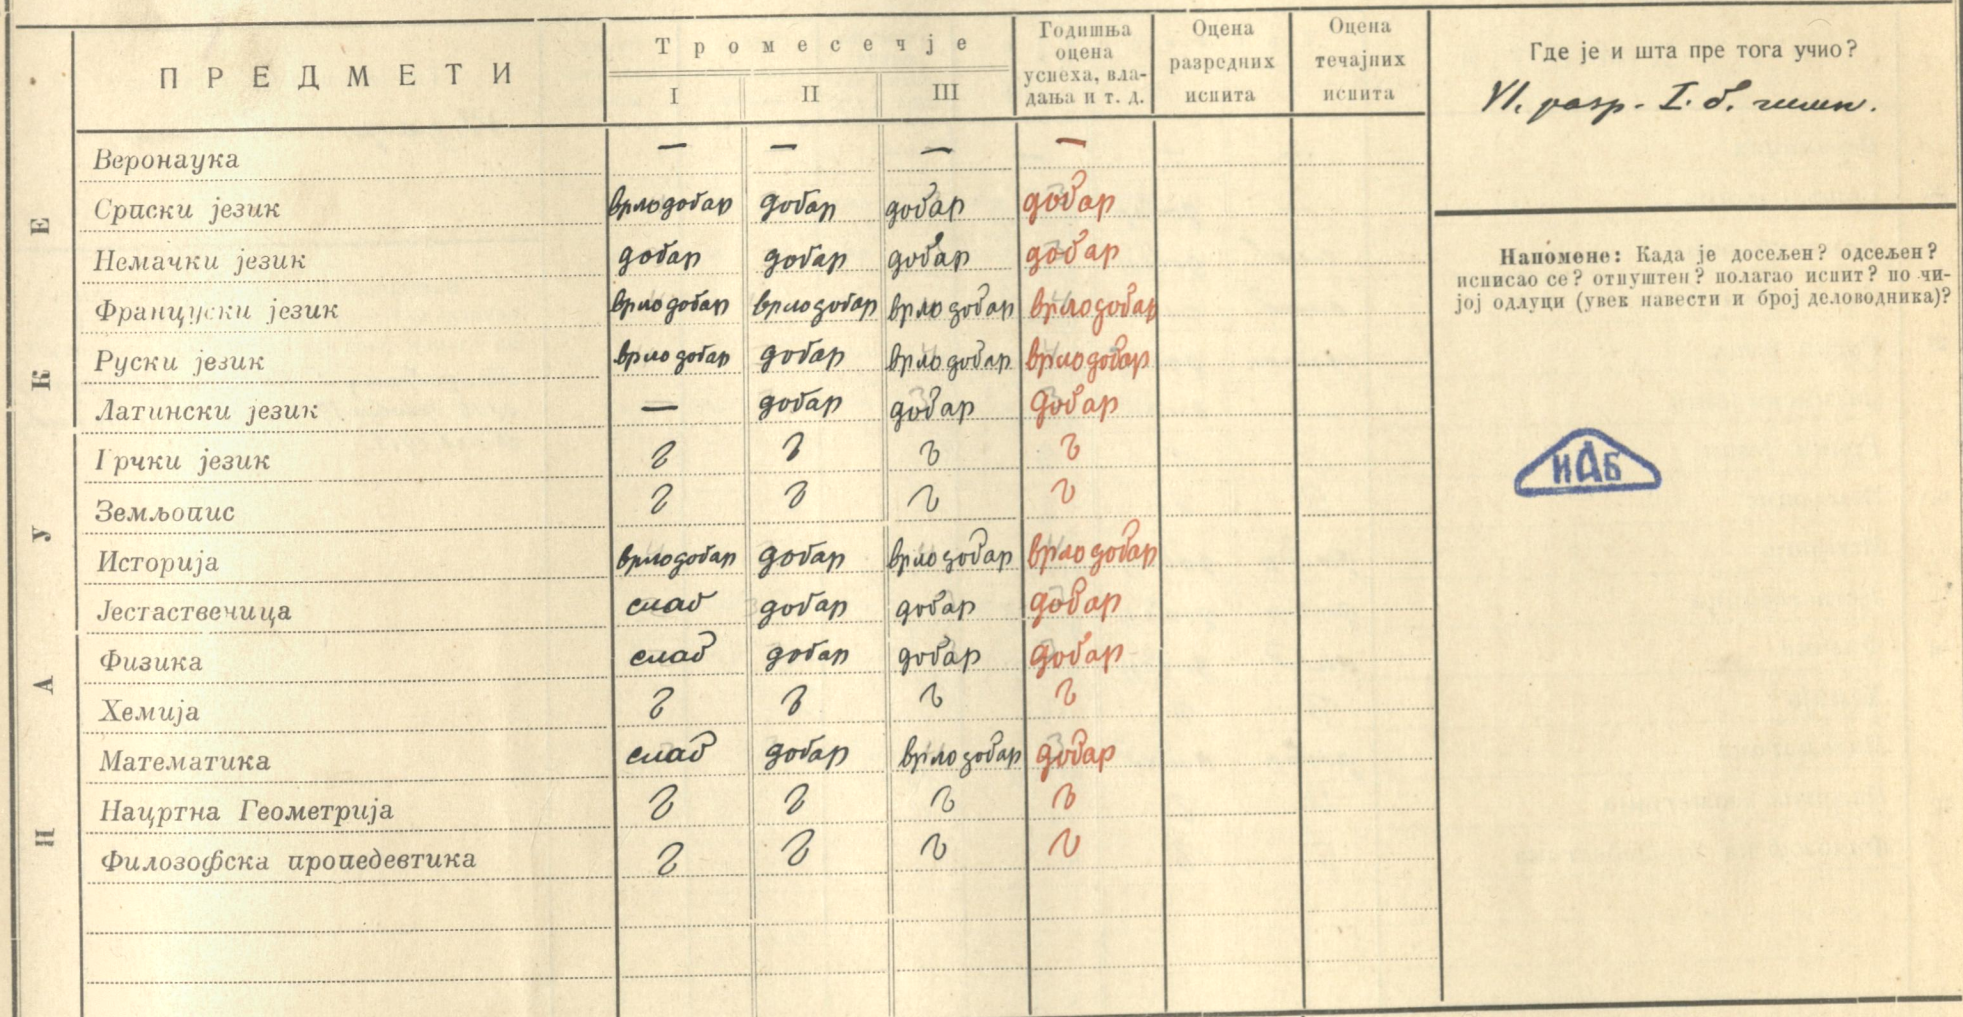 НАУКЕ
ПРЕДМЕТИ
Тромесечје
I II III
Годишња оцена успеха, вла-дања и т. д.
Оцена разредних испита
Оцена течајних испита
Веронаука — — — —
Српски језик врлодобар добар добар добар
Немачки језик добар добар добар добар
Француски језик врлодобар врлодобар врлодобар врлодобар
Руски језик врлодобар добар врлодобар врлодобар
Латински језик — добар добар добар
Грчки језик
Земљопис
Историја врлодобар добар врлодобар врлодобар
Јестаственица слаб добар добар добар
Физика слаб добар добар добар
Хемија
Математика слаб добар врлодобар добар
Нацртна Геометрија
Филозофска пропедевтика
Где је и шта пре тога учио?
VI. разр. I. б. гимн.
Напомене: Када је досељен? одсељен?
исписао се? отпуштен? полагао испит? по чи-
јој одлуци (увек навести и број деловодника)?
ИАБ